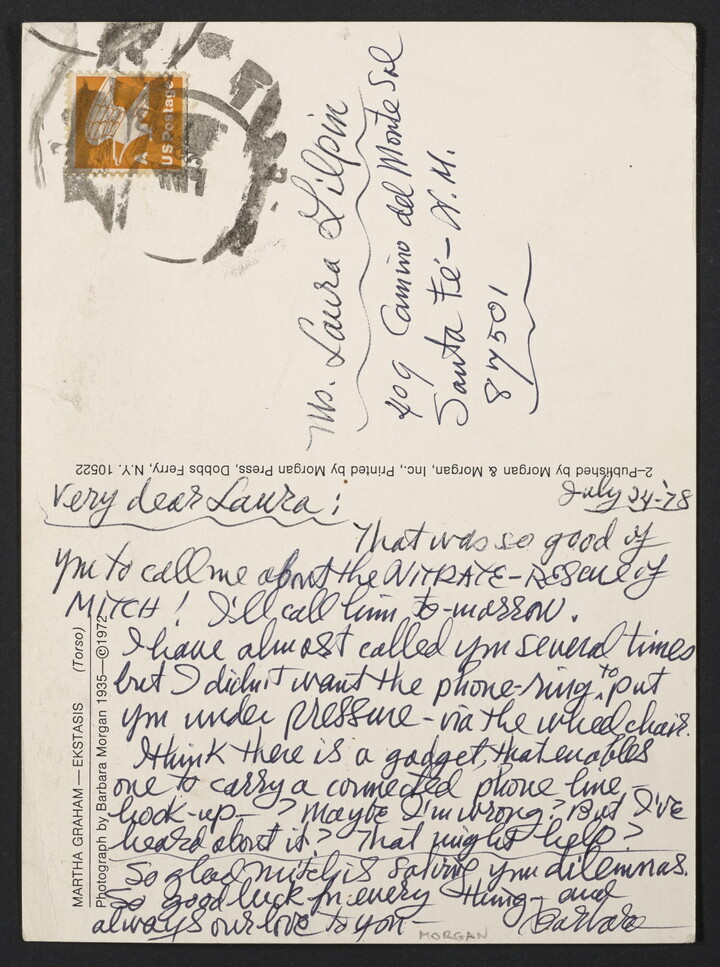 A
US Postage
Ms. Laura Gilpin
409 Camino del Monte Sol
Santa Fé - N.M.
87501
2-Published by Morgan & Morgan, Inc., Printed by Morgan Press, Dobbs Ferry, N.Y. 10522
July 24-'78
Very dear Laura:
That was so good of
you to call me about the NITRATE-RESCUE of
MITCH! I'll call him to-morrow.
I have almost called you several times
but I didn't want the phone-ring, to put
you under PRESSURE - via the wheel chair.
I think there is a gadget, that enables
one to carry a connected phone line -
hook-up - ? Maybe I'm wrong? But I've
heard about it? That might help?
So glad Mitch is solving your dilemmas.
So good luck for every thing - and
always our love to you -
Barbara
MORGAN
MARTHA GRAHAM — EKSTASIS (Torso)
Photograph by Barbara Morgan 1935—©1972